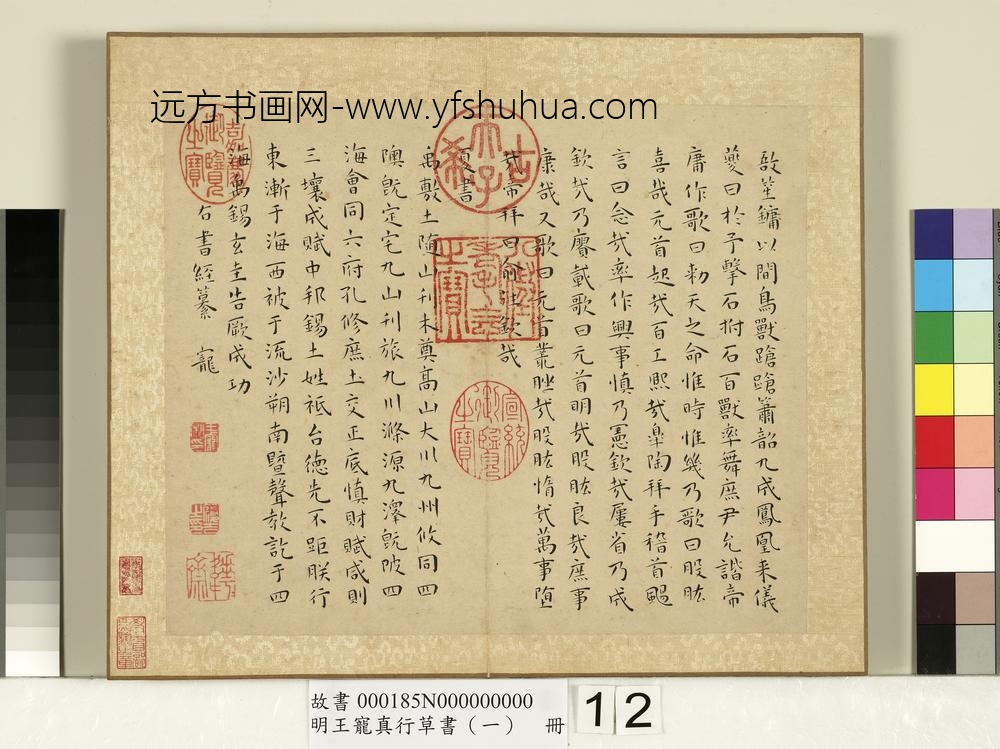 远方书画网-www.yfshuhua.com
敔笙鏞以間鳥獸蹌蹌簫韶九成鳳凰来儀
夔曰於予擊石拊石百獸率舞庶尹允諧帝
庸作歌曰勑天之命惟時惟幾乃歌曰股肱
喜哉元首起哉百工熙哉臯陶拜手稽首颺
言曰念哉率作興事慎乃憲欽哉屢省乃成
欽哉乃賡載歌曰元首明哉股肱良哉庶事
康哉又歌曰元首叢脞哉股肱惰哉萬事墮
哉帝拜曰俞往欽哉
夏書
禹敷土隨山刊木奠高山大川九州攸同四
隩既定宅九山刊旅九川滌源九澤既陂四
海會同六府孔修庶土交正底慎財賦咸則
三壤成賦中邦錫土姓祗台德先不距朕行
東漸于海西被于流沙朔南暨聲教訖于四
海禹錫玄圭告厥成功
右書經纂 寵
古希天子
八徵耄念之寶
嘉慶御覽之寶
宣統御覽之寶
故書 000185N000000000
明王寵真行草書（一） 冊
12